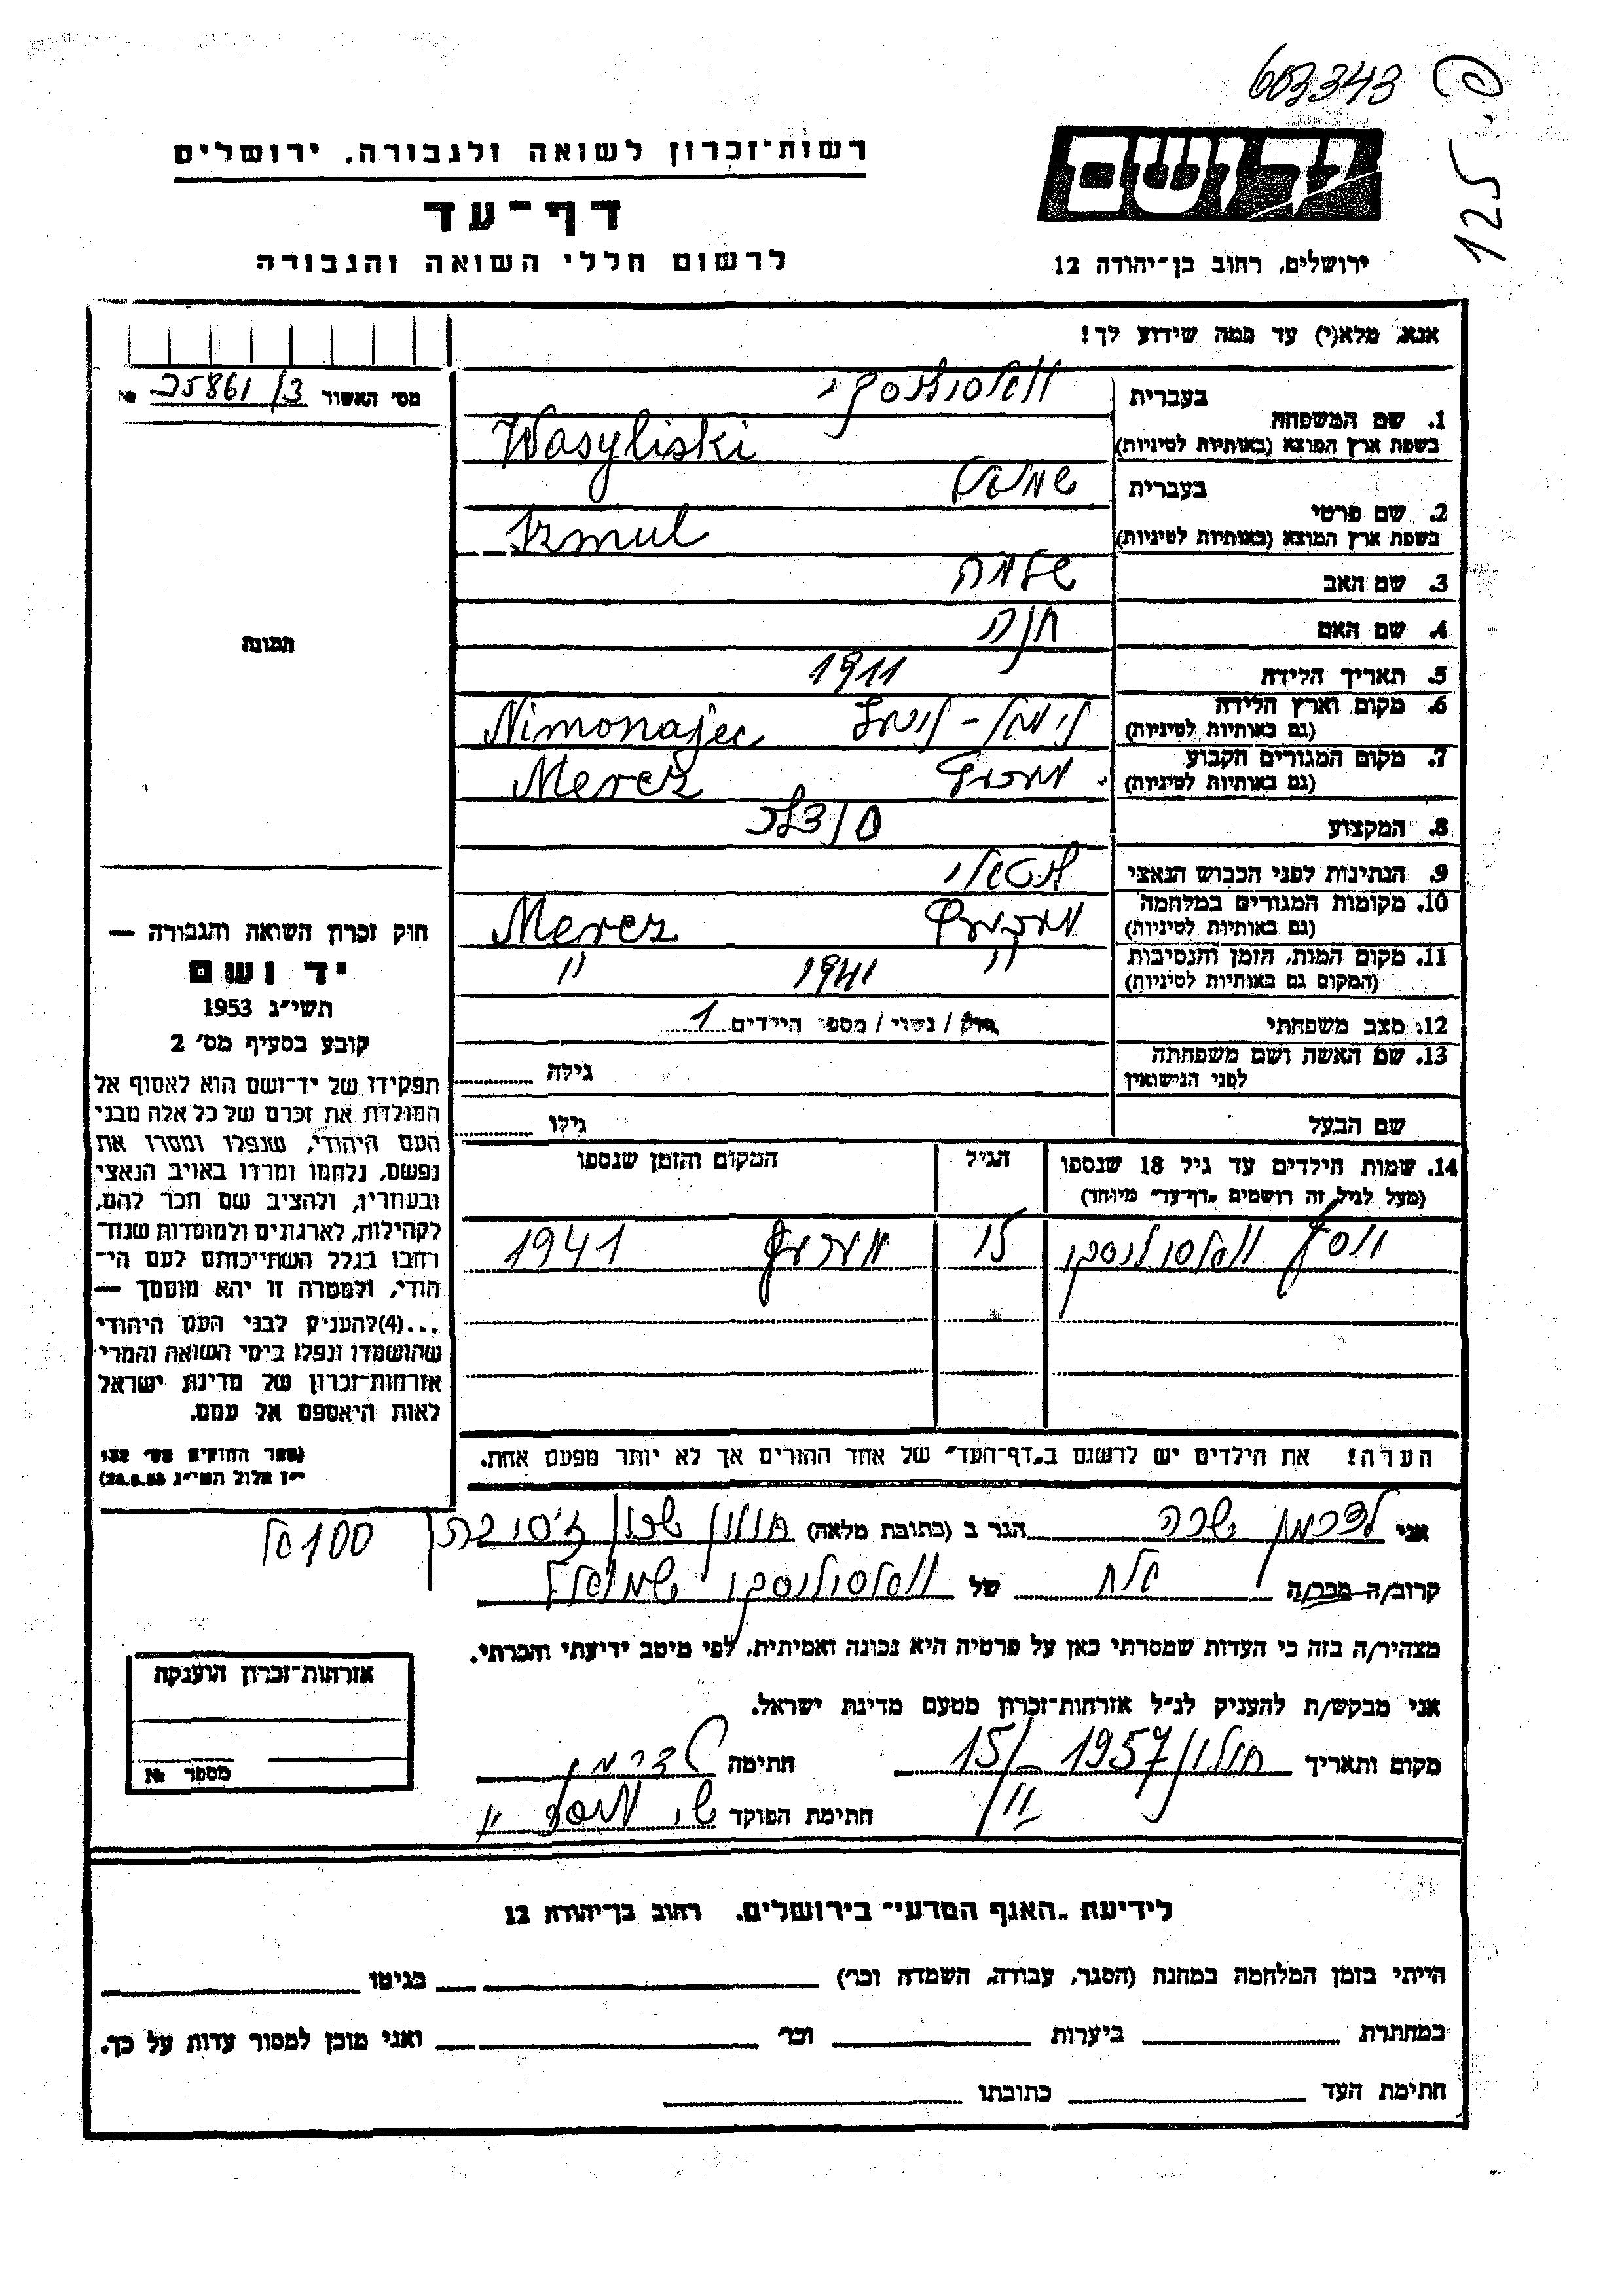 603343
125
רשות־זכרון לשואה ולגבורה, ירושלים
דף־עד
לרשום חללי השואה והגבורה
יד ושם
ירושלים, רחוב בן־יהודה 12
אנא, מלא(י) עד כמה שידוע לך!
מס' האשור 25861/3 №
תמונה
1. שם המשפחה
בעברית
בשפת ארץ המוצא (באותיות לטיניות) Wasyliski
2. שם פרטי
בעברית שמואל
בשפת ארץ המוצא (באותיות לטיניות)
3. שם האב שלמה
4. שם האם חנה
5. תאריך הלידה 1911
6. מקום וארץ הלידה
(גם באותיות לטיניות) Nimonajec
7. מקום המגורים הקבוע
(גם באותיות לטיניות) Merez
8. המקצוע סנדלר
9. הנתינות לפני הכבוש הנאצי ליטאי
10. מקומות המגורים במלחמה
(גם באותיות לטיניות) Merez
11. מקום המות, הזמן והנסיבות
(המקום גם באותיות לטיניות) " 1941 "
12. מצב משפחתי רווק / נשוי / מספר הילדים 1
13. שם האשה ושם משפחתה
לפני הנישואין
גילה
שם הבעל גילו
14. שמות הילדים עד גיל 18 שנספו
(מעל לגיל זה רושמים „דף־עד" מיוחד)
הגיל
המקום והזמן שנספו
יוסף 1941
הערה! את הילדים יש לרשום ב„דף־העד" של אחד ההורים אך לא יותר מפעם אחת.
חוק זכרון השואה והגבורה —
יד ושם
תשי"ג 1953
קובע בסעיף מס' 2
תפקידו של יד־ושם הוא לאסוף אל
המולדת את זכרם של כל אלה מבני
העם היהודי, שנפלו ומסרו את
נפשם, נלחמו ומרדו באויב הנאצי
ובעוזריו, ולהציב שם וזכר להם,
לקהילות, לארגונים ולמוסדות שנח־
רבו בגלל השתייכותם לעם הי־
הודי, ולמטרה זו יהא מוסמך —
...(4) להעניק לבני העם היהודי
שהושמדו ונפלו בימי השואה והמרי
אזרחות־זכרון של מדינת ישראל
לאות היאספם אל עמם.
(ספר החוקים מס' 132
י"ז אלול תשי"ג 28.8.53)
אני לדרמן שרה הגר ב (כתובת מלאה) חולון שכון
100
קרוב/ה מכר/ה אחות של שמואל
מצהיר/ה בזה כי העדות שמסרתי כאן על פרטיה היא נכונה ואמיתית, לפי מיטב ידיעתי והכרתי.
אני מבקש/ת להעניק לנ"ל אזרחות־זכרון מטעם מדינת ישראל.
מקום ותאריך חולון 1957 15/ חתימה לדרמן
חתימת הפוקד
אזרחות־זכרון הוענקה
מספר №
לידיעת „האגף המדעי" בירושלים, רחוב בן־יהודה 12
הייתי בזמן המלחמה במחנה (הסגר, עבודה, השמדה וכו') בגיטו
במחתרת ביערות וכו' ואני מוכן למסור עדות על כך.
חתימת העד כתובתו